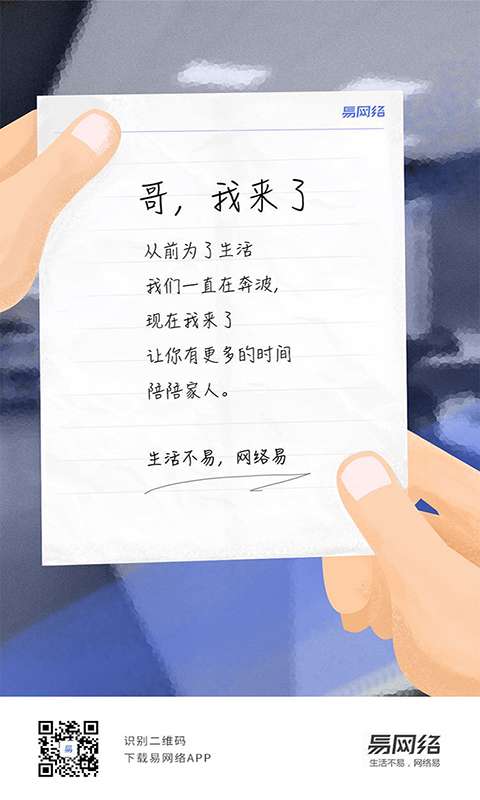 易网络
哥，我来了
从前为了生活
我们一直在奔波，
现在我来了
让你有更多的时间
陪陪家人。
生活不易，网络易
易
识别二维码
下载易网络APP
易网络
生活不易，网络易